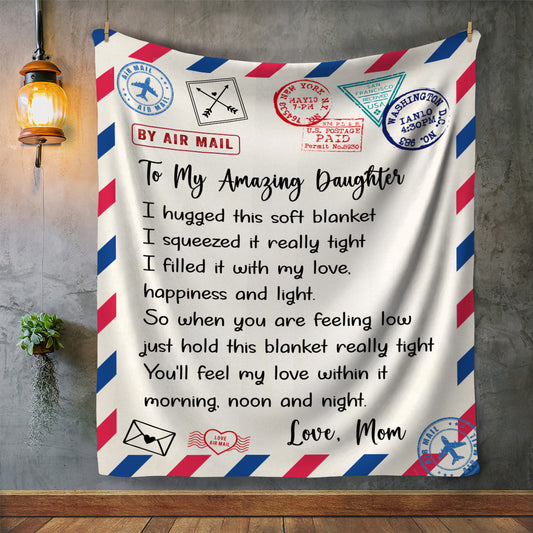 AIR MAIL
BY AIR MAIL
NEW YORK, NY
MAY10
7-PM
SAN
FRANCISCO
USA
U.S. POSTAGE
PAID
Permit No.8930
WASHINGTON D.C.
JAN10
4:30PM
NO. 983
To My Amazing Daughter
I hugged this soft blanket
I squeezed it really tight
I filled it with my love,
happiness and light.
So when you are feeling low
just hold this blanket really tight
You'll feel my love within it
morning, noon and night.
Love, Mom
LOVE
AIR MAIL
AIR MAIL